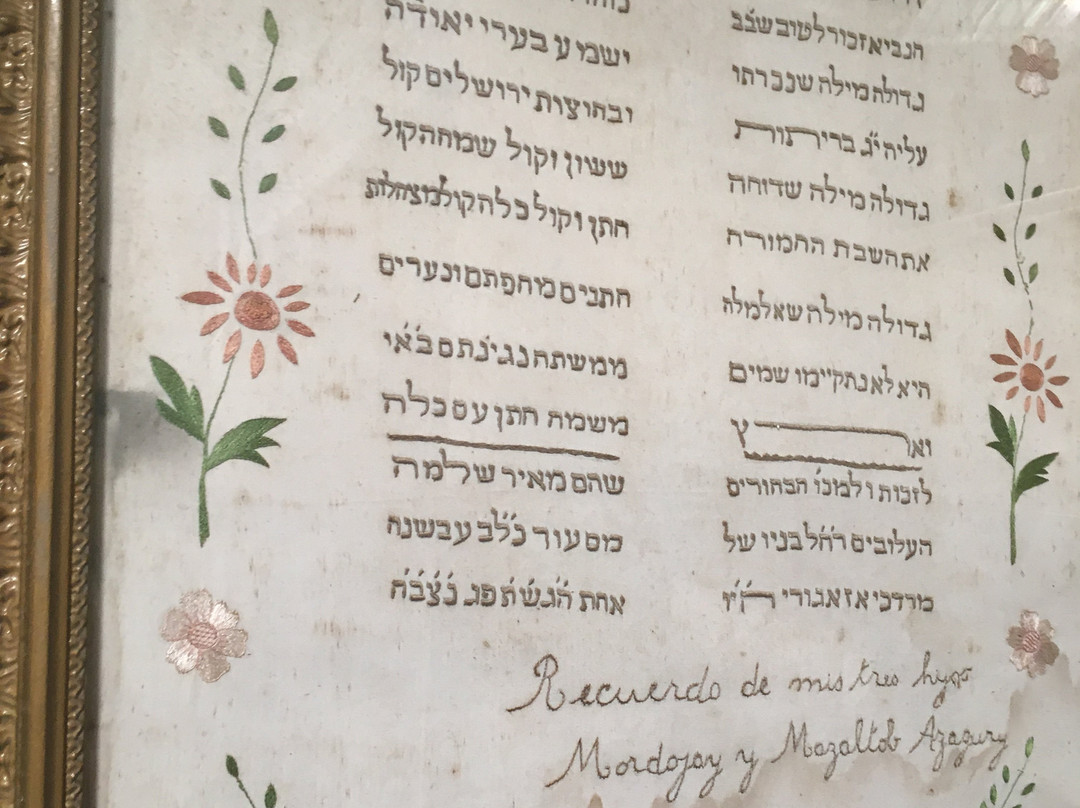 הנביא זכור לטוב שבֿבֿ
גדולה מילה שנכרתו
עליה יֿגֿ בריתות
גדולה מילה שדוחה
את השבת החמורה
גדולה מילה שאלמלה
היא לא נתקיימו שמים
ואר ץ
לזכות ולמנו הבחורים
העלובים רחל בניו של
מרדכי אזאגורי
ישמע בערי יאודה
ובחוצות ירושלים קול
ששון וקול שמחה קול
חתן וקול כלה קול מצהלות
חתנים מחפתם ונערים
ממשתה נגינתם בֿאֿי
משמח חתן עם הכלה
שהם מאיר שלמה
מסעוד נֿלֿב עבשנה
אחת הֿגֿשֿתֿפֿגֿ נֿצֿבֿהֿ
Recuerdo de mis tres hijos
Mordojay y Mazaltob Azagury